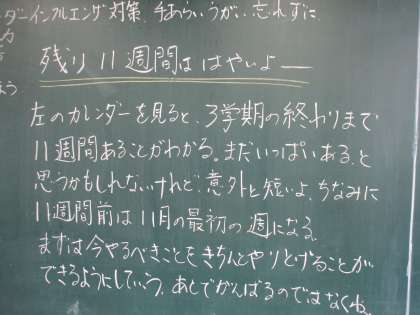 ダーインフルエンザ対策、手あらい、うがい、忘れずに
残り11週間は はやいよー
左のカレンダーを見ると、3学期の終わりまで
11週間あることがわかる。まだいっぱいある、と
思うかもしれないけれど、意外と短いよ。ちなみに
11週間前は11月の最初の週になる。
まずは今やるべきことをきちんとやりとげることが
できるようにしていこう。あとでがんばるのではなくね。